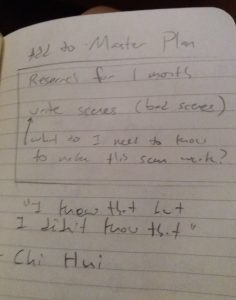 Add to Master Plan
Research for 1 month
write scenes (bad scenes)
what do I need to know
to make this scene work?
"I know that but
I didn't know that"
- Chi Hui